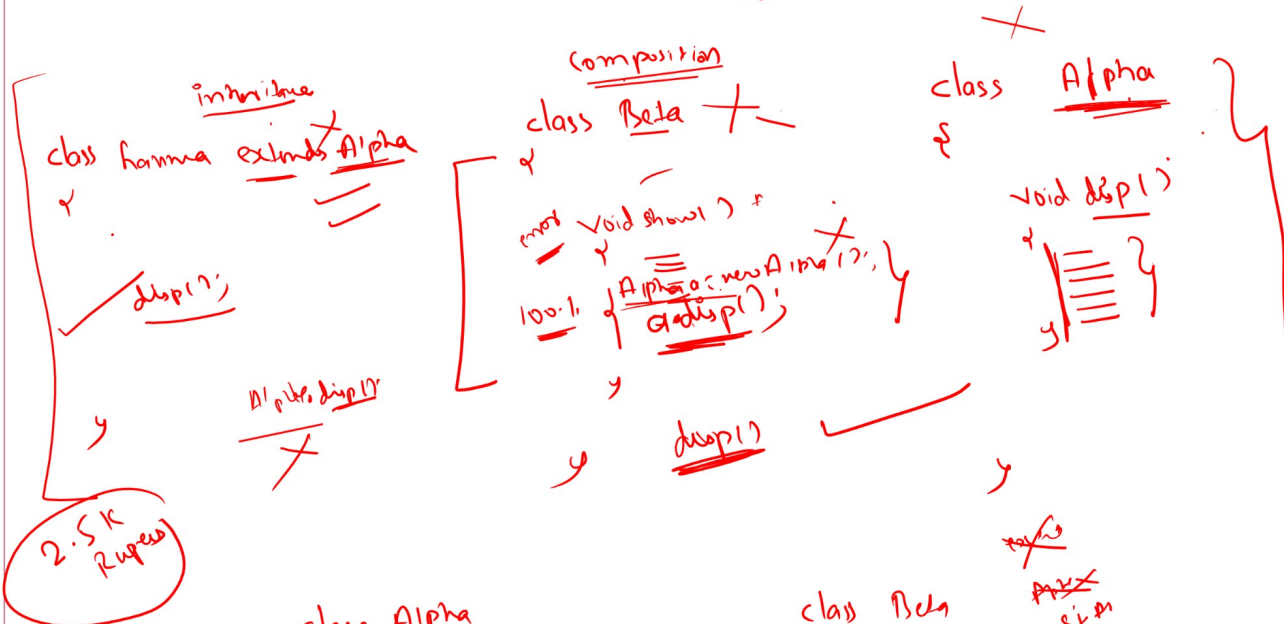 inheritance
class Gamma extends Alpha
{
disp();
}
Alpha.disp();
2.5K
Rupees
composition
class Beta
{
error void show()
{
100% { Alpha a = new Alpha(); }
a.disp();
}
}
disp()
class Alpha
{
void disp()
{
}
}
class Alpha
class Beta